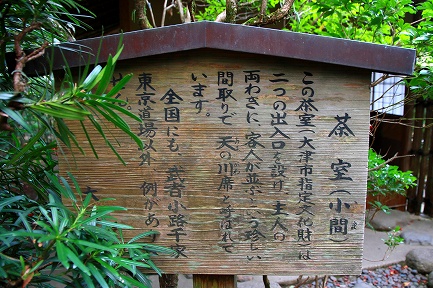 茶室(小間)
この茶室(大津市指定文化財)は
二つの出入口を設け、主人の
両わきに客人が並ぶという珍しい
間取りで天の川席と呼ばれて
います。
全国にも、武者小路千家
東京道場以外例があり